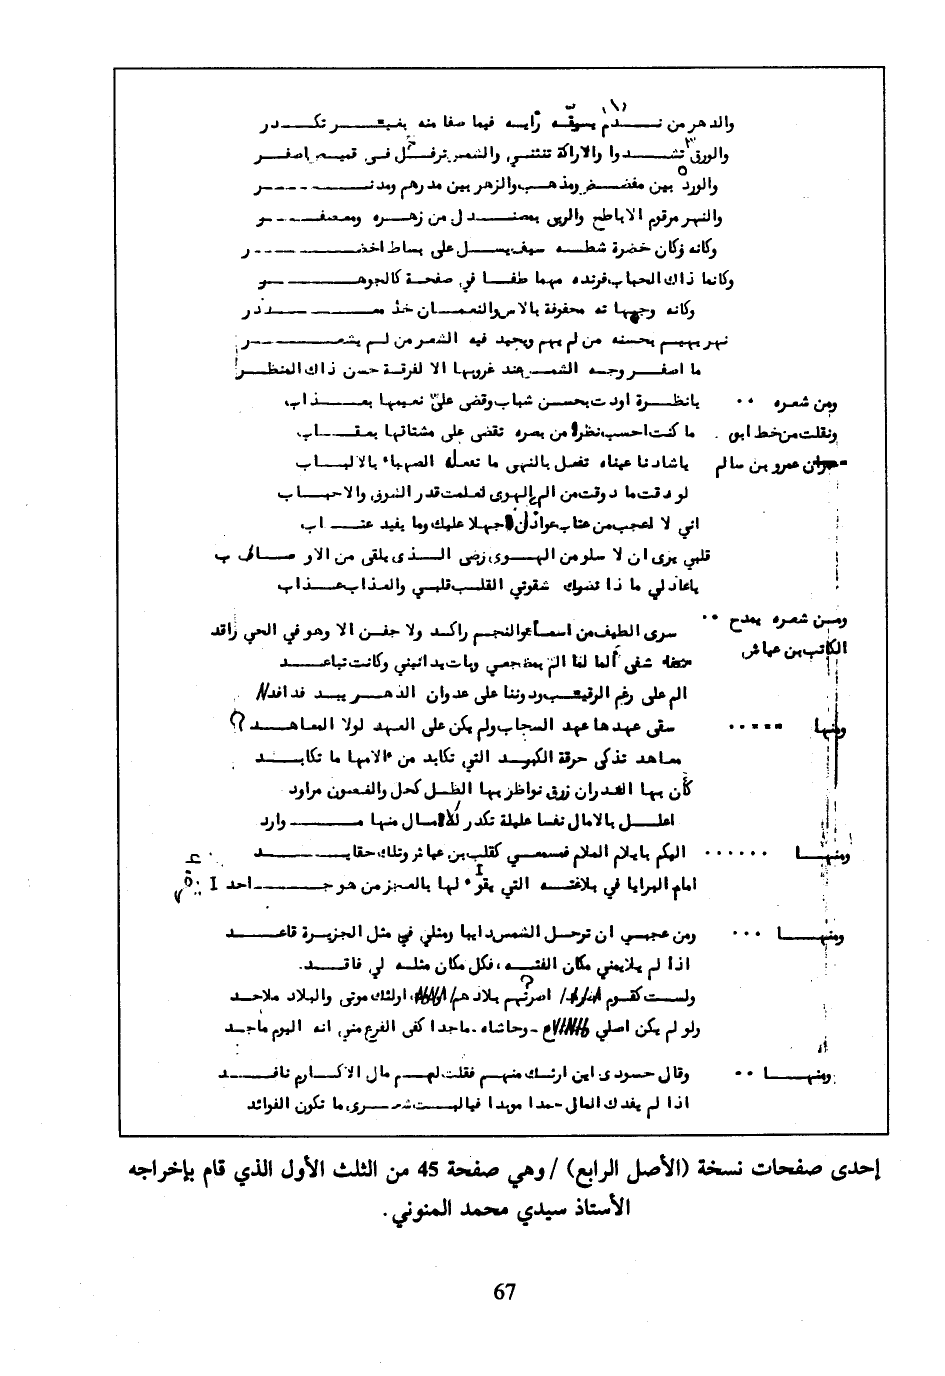 والدهر من نـدم يسوقه رأيه فيما صفا منه بغير تكدر
والورق تشدوا والاراكة تنثني والشمس ترفل في قميص اصفر
والورد بين مفضض ومذهب والزهر بين مدرهم ومدنر
والنهر مرقوم الاباطح والربى بمصندل من زهره ومعصفر
وكانه وكان خضرة شطه سيف يسل على بساط اخضر
وكانما ذاك الحباب فرنده مهما طفا في صفحة كالجوهر
وكانه وجهاته محفوفة بالاس والنعمان خد معذر
نهر يهيم بحسنه من لم يهم ويجيد فيه الشعر من لم يشعر
ما اصفر وجه الشمس عند غروبها الا لفرقة حسن ذاك المنظر
ومن شعره ٠٠ يانظرة اودت بحسن شباب وقضى علي نعيمها بعذاب
ونقلت من خط ابو ما كنت احسب نظرة من بصره تقضى على مشتاقها بعقاب
عمرو بن سالم ياشادنا عيناه تفعل بالنهى ما تفعله الصهباء بالالباب
لو ذقت ما ذوقت من الم الهوى لعلمت قدر الشوق والاحباب
اني لا لعجب من عتاب عواذل جهلا عليك وما يفيد عتاب
قلبي يرى ان لا سلو من الهوى رضى الذى يلقى من الاوصاب
ياعاذلي ما ذا تضرك شقوتي القلب قلبي والعذاب عذاب
ومن شعره يمدح ٠٠ سرى الطيف من اسماء والنجم راكد ولا جفن الا وهو في الحي راقد
الكاتب بن عياش شفى ألما لما الم بمضجعي وبات يدانيني وكانت تباعد
الم على رغم الرقيب ودوننا على عدوان الدهر بيد فدافد
ومنها ٠٠٠٠٠ سقى عهدها عهد السحاب ولم يكن على العهد لولا المعاهد ؟
معاهد تذكى حرقة الكبد التي تكابد من الامها ما تكابد
كأن بها الغدران زرق نواظر بها الظل كحل والغصون مراود
اعلل بالامال نفسا عليلة تكدر للامال منها موارد
ومنها ٠٠٠٠٠٠ اليكم يايلام الملام فسمعي كقلب بن عياش وتلك حقايد
امام البرايا في بلاغته التي يقو لها بالعجز من هو جاحد
ومنها ٠٠٠ ومن عجبي ان ترحل الشمس دايبا ومثلي في مثل الجزيرة قاعد
اذا لم يلايمني مكان الفته، فكل مكان مثله لي فاقد.
ولست كقوم اصرتهم بلادهم اولئك موتى والبلاد ملاحد
ولو لم يكن اصلي - وحاشاه - ماجدا كفى الفرع مني انه اليوم ماجد
ومنها ٠٠ وقال حسودى اين ارثك منهم فقلت لهم مال الاكارم نافد
اذا لم يفدك المال حمدا موبدا فياليت شعرى ما تكون الفوائد
إحدى صفحات نسخة (الأصل الرابع) / وهي صفحة 45 من الثلث الأول الذي قام بإخراجه
الأستاذ سيدي محمد المنوني.
67